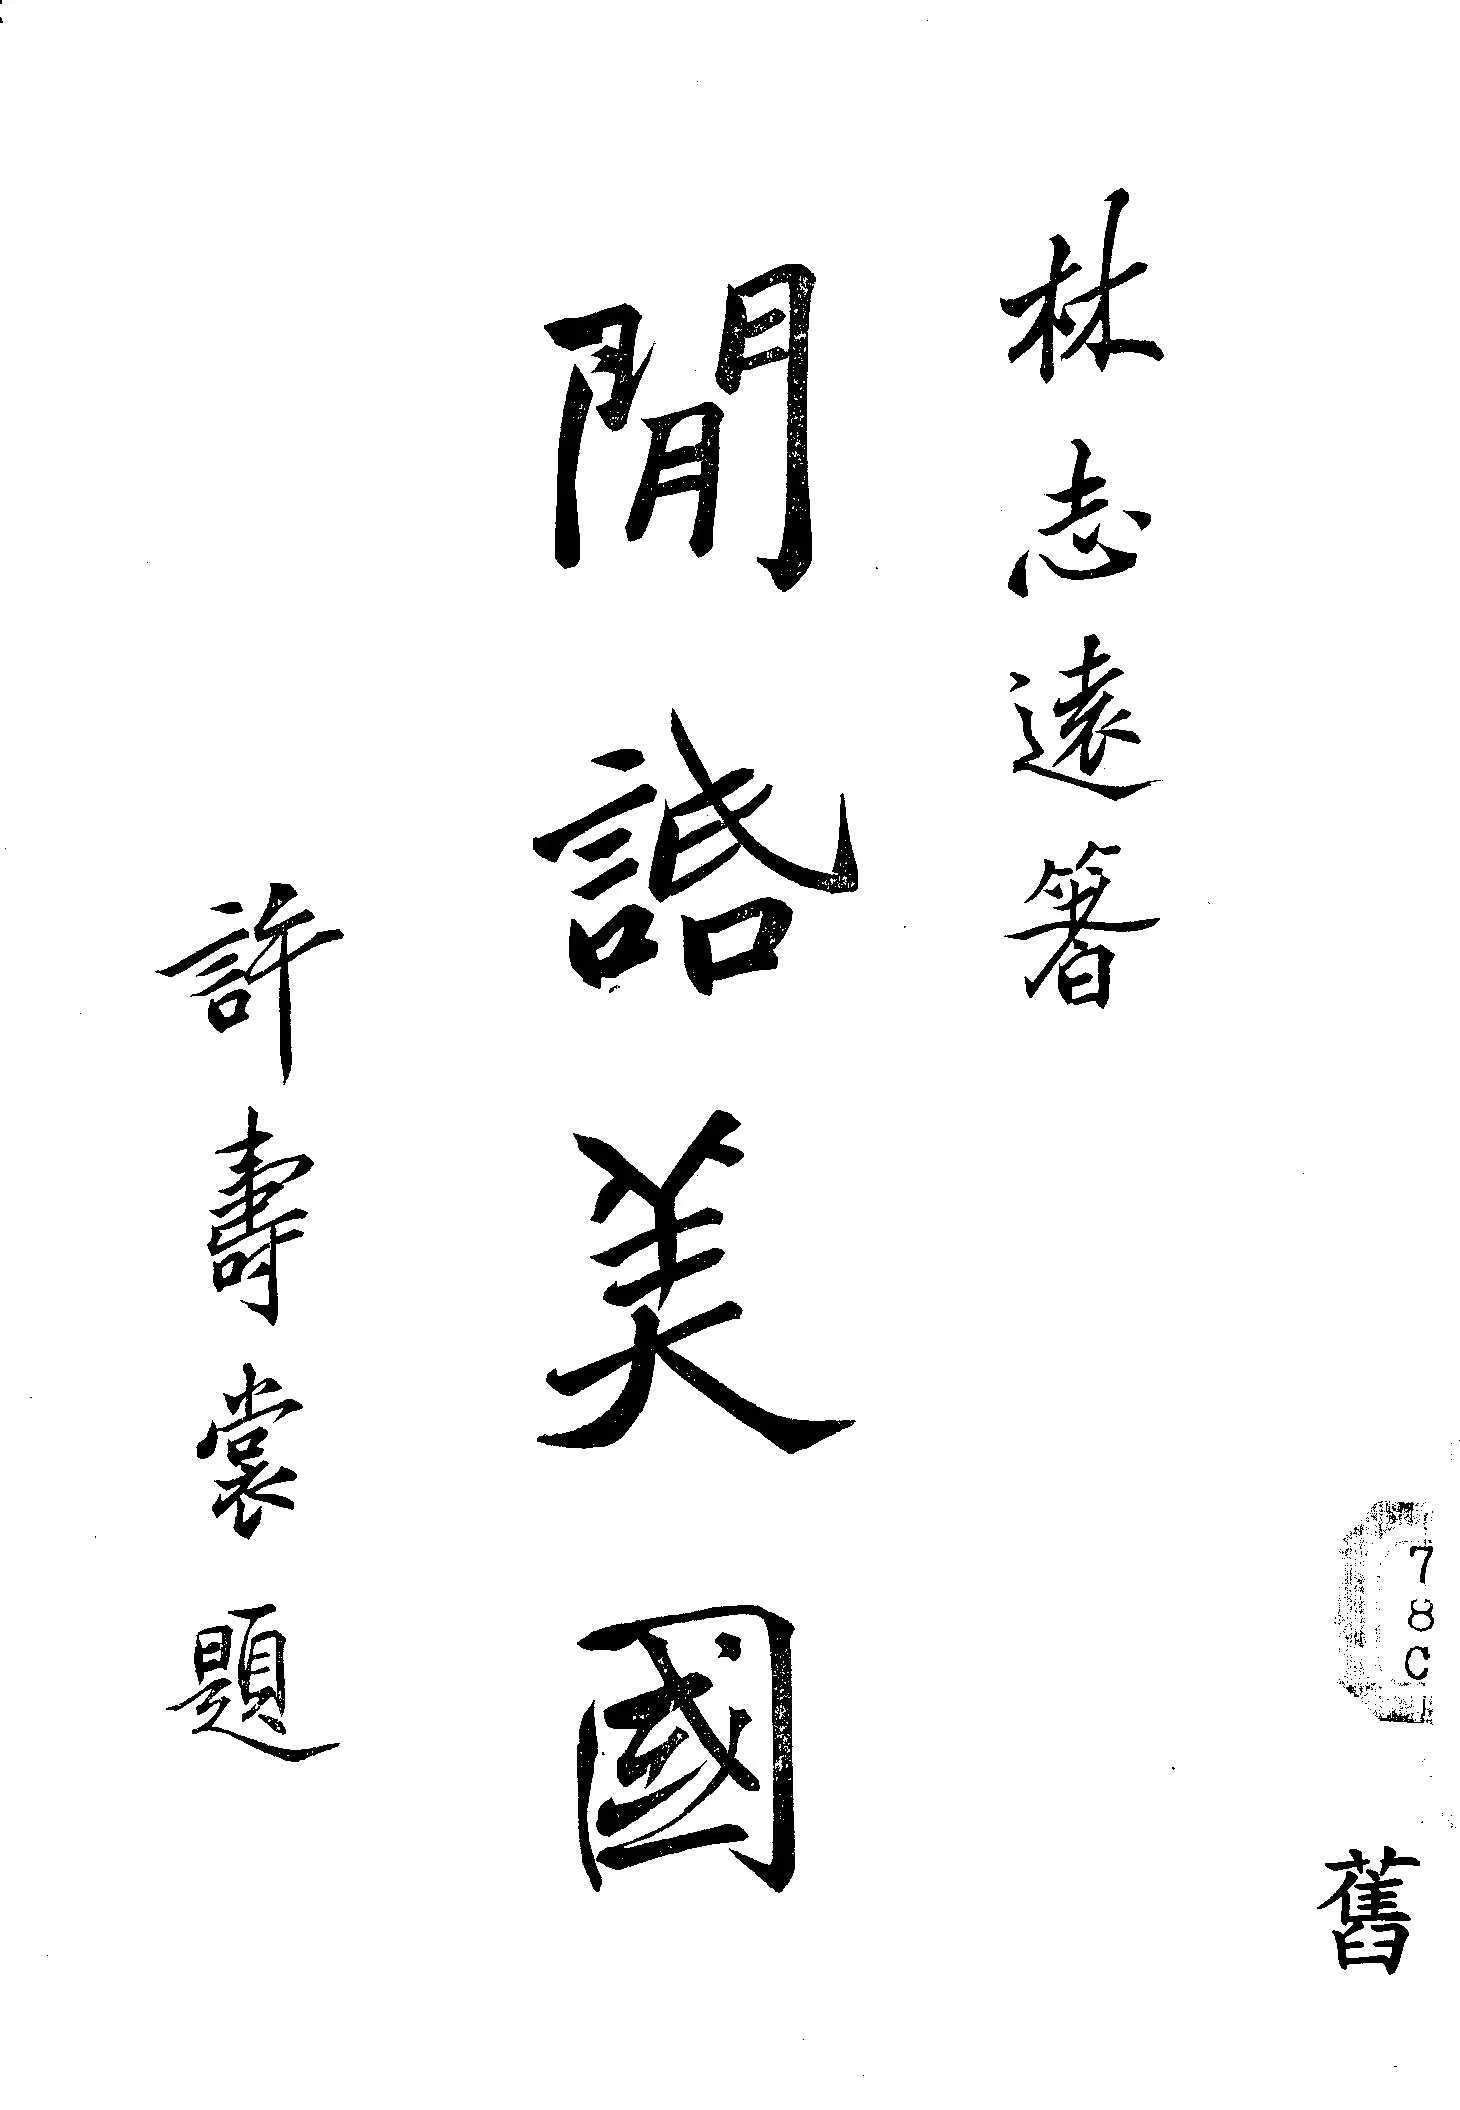 林志遠箸
閒䛡美國
許壽裳題
78C
舊